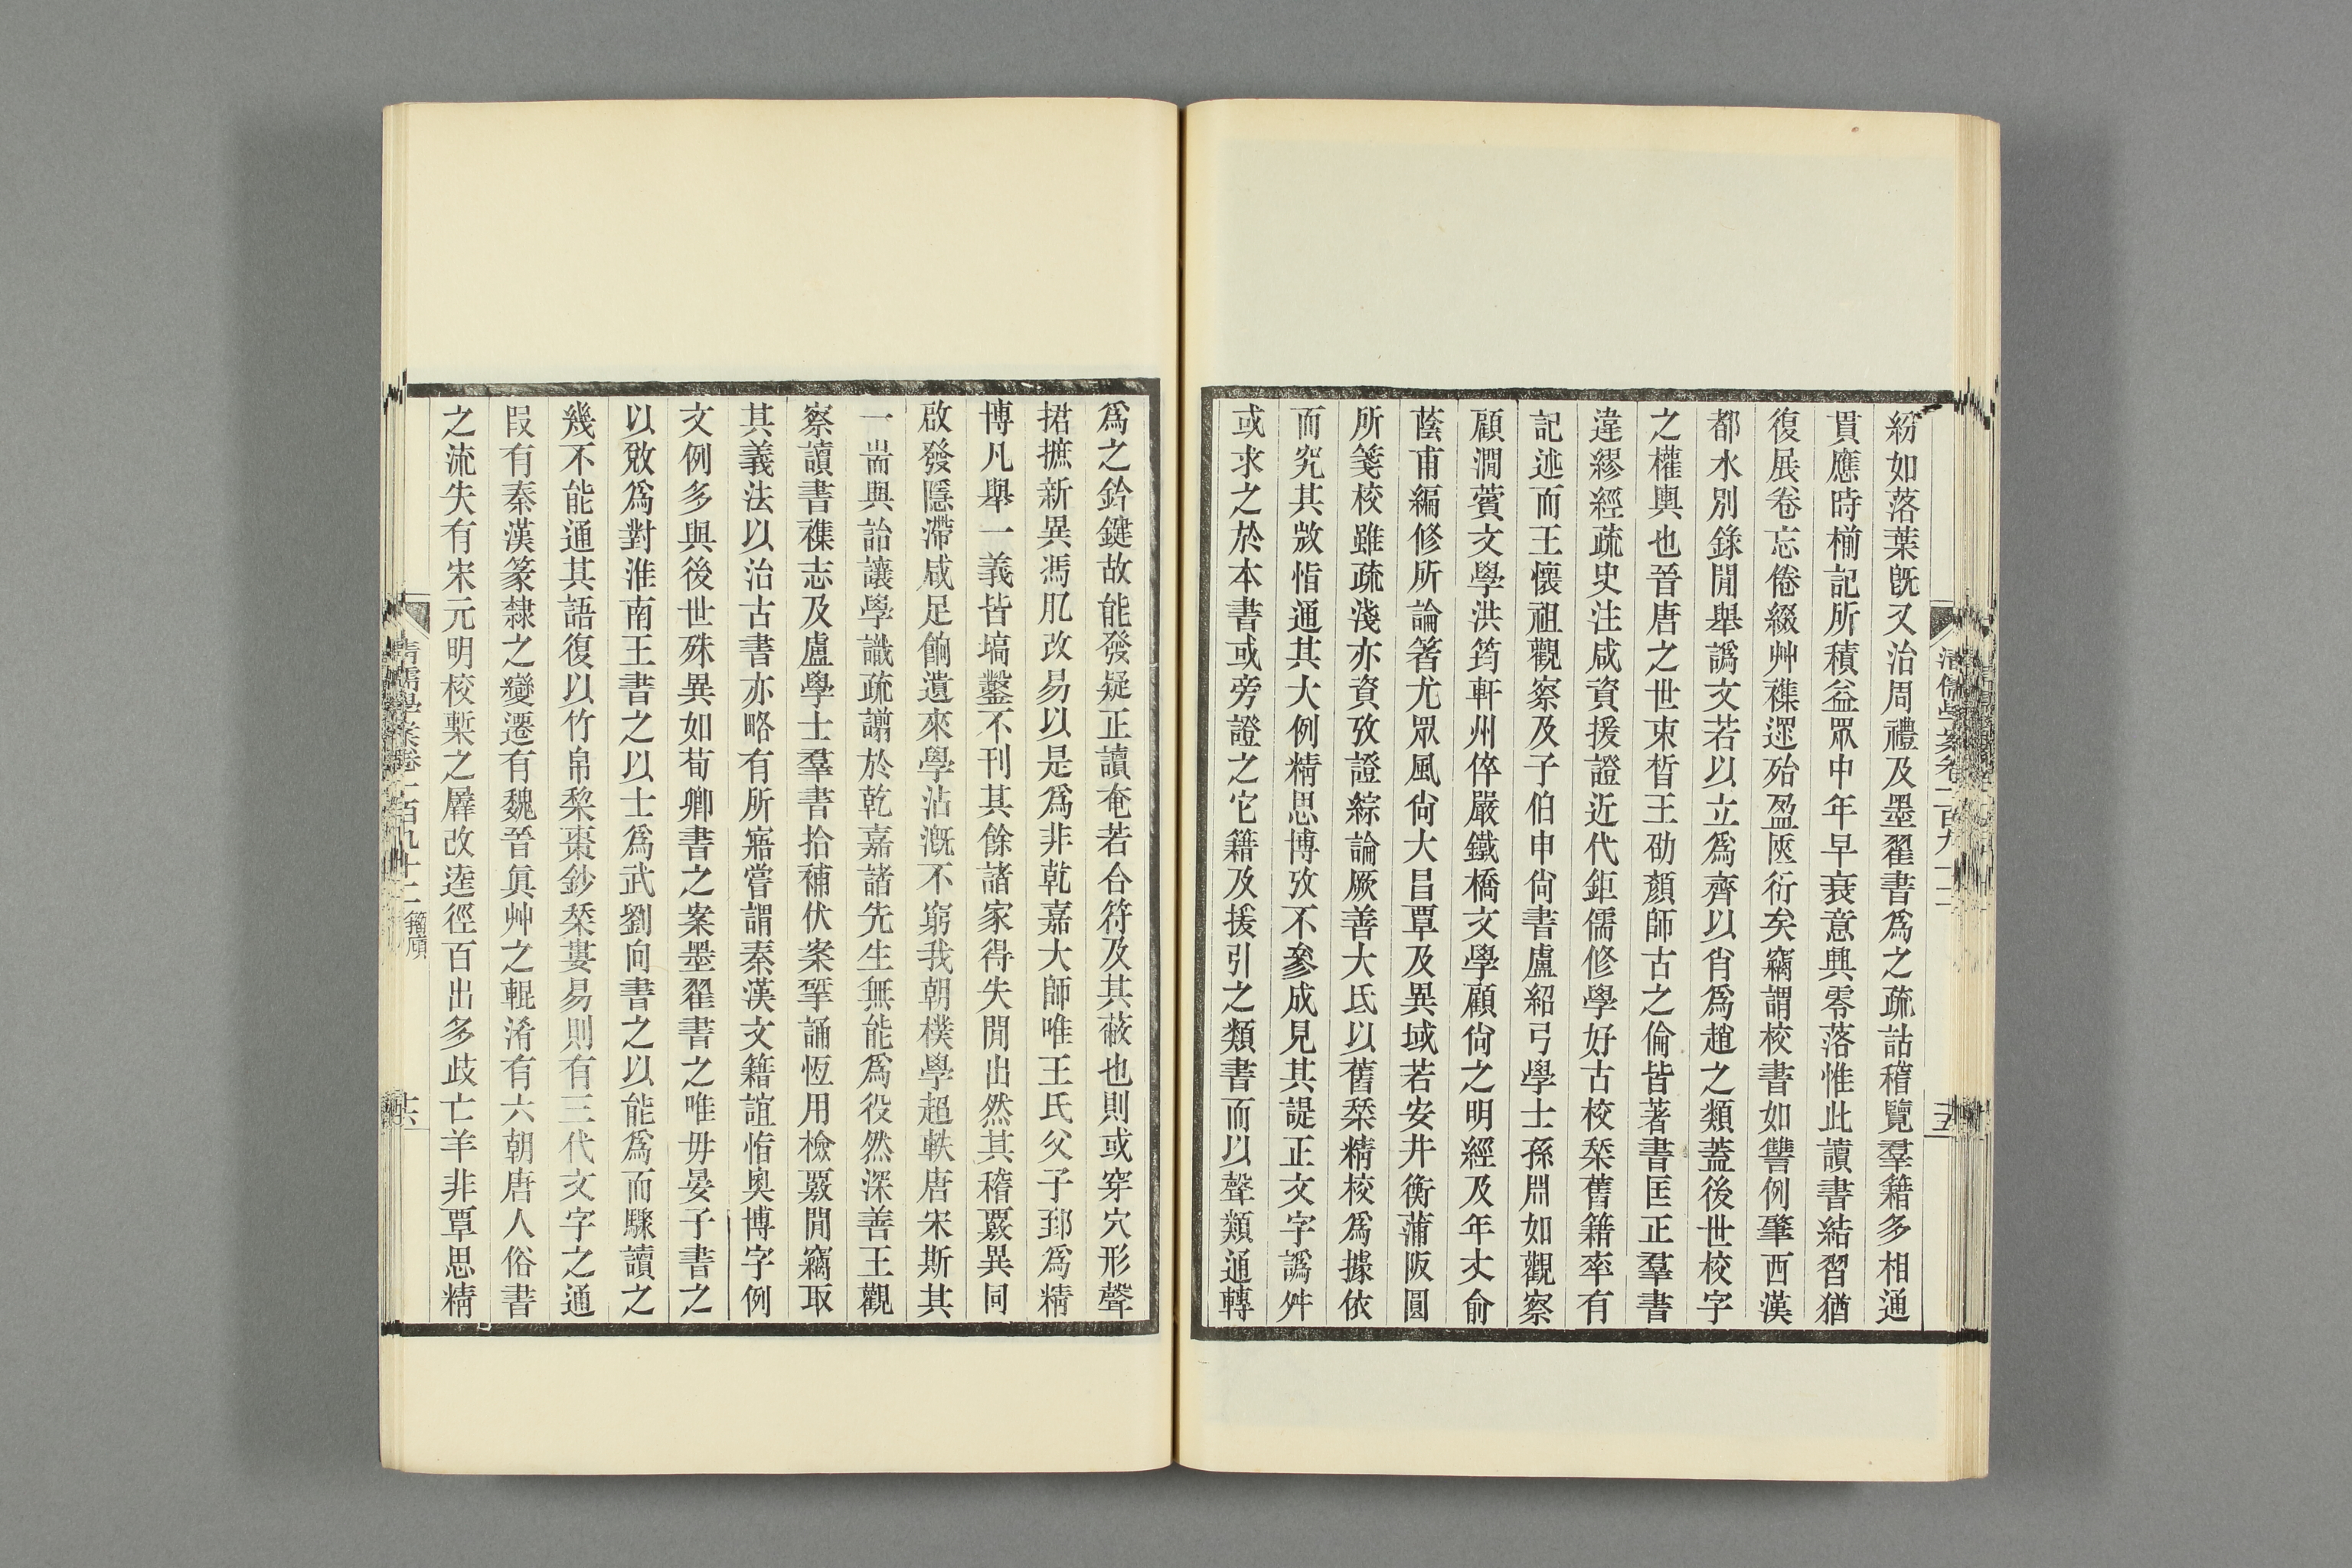 紛如落葉旣又治周禮及墨翟書爲之疏詁稽覽羣籍多相通
貫應時椾記所積益眾中年早衰意興零落惟此讀書結習猶
復展卷忘倦綴艸襍遻殆盈匧衍矣竊謂校書如讐例肇西漢
都水別錄閒舉譌文若以立爲齊以肖爲趙之類蓋後世校字
之權輿也晉唐之世束晳王劭顏師古之倫皆著書匡正羣書
違繆經疏史注咸資援證近代鉅儒修學好古校栞舊籍率有
記述而王懷祖觀察及子伯申尙書盧紹弓學士孫淵如觀察
顧澗薲文學洪筠軒州倅嚴鐵橋文學顧尙之明經及年丈俞
蔭甫編修所論箸尤眾風尙大昌覃及異域若安井衡蒲阪圓
所箋校雖疏淺亦資攷證綜論厥善大氐以舊栞精校爲據依
而究其敚恉通其大例精思博攷不參成見其諟正文字譌舛
或求之於本書或旁證之它籍及援引之類書而以聲類通轉
爲之錀鍵故能發疑正讀奄若合符及其蔽也則或穿穴形聲
捃摭新異馮肊改易以是爲非乾嘉大師唯王氏父子郅爲精
博凡舉一義皆塙鑿不刊其餘諸家得失閒出然其稽覈異同
啟發隱滯咸足餉遺來學沾漑不窮我朝樸學超軼唐宋斯其
一耑與詒讓學識疏譾於乾嘉諸先生無能爲役然深善王觀
察讀書襍志及盧學士羣書拾補伏案揅誦恆用檢覈閒竊取
其義法以治古書亦略有所寤嘗謂秦漢文籍誼恉奧博字例
文例多與後世殊異如荀卿書之案墨翟書之唯毋晏子書之
以敚爲對淮南王書之以士爲武劉向書之以能爲而驟讀之
幾不能通其語復以竹帛棃棗鈔栞屢易則有三代文字之通
叚有秦漢篆隸之變遷有魏晉眞艸之輥淆有六朝唐人俗書
之流失有宋元明校槧之羼改逵徑百出多歧亡羊非覃思精
清儒學案卷一百九十二
籀廎